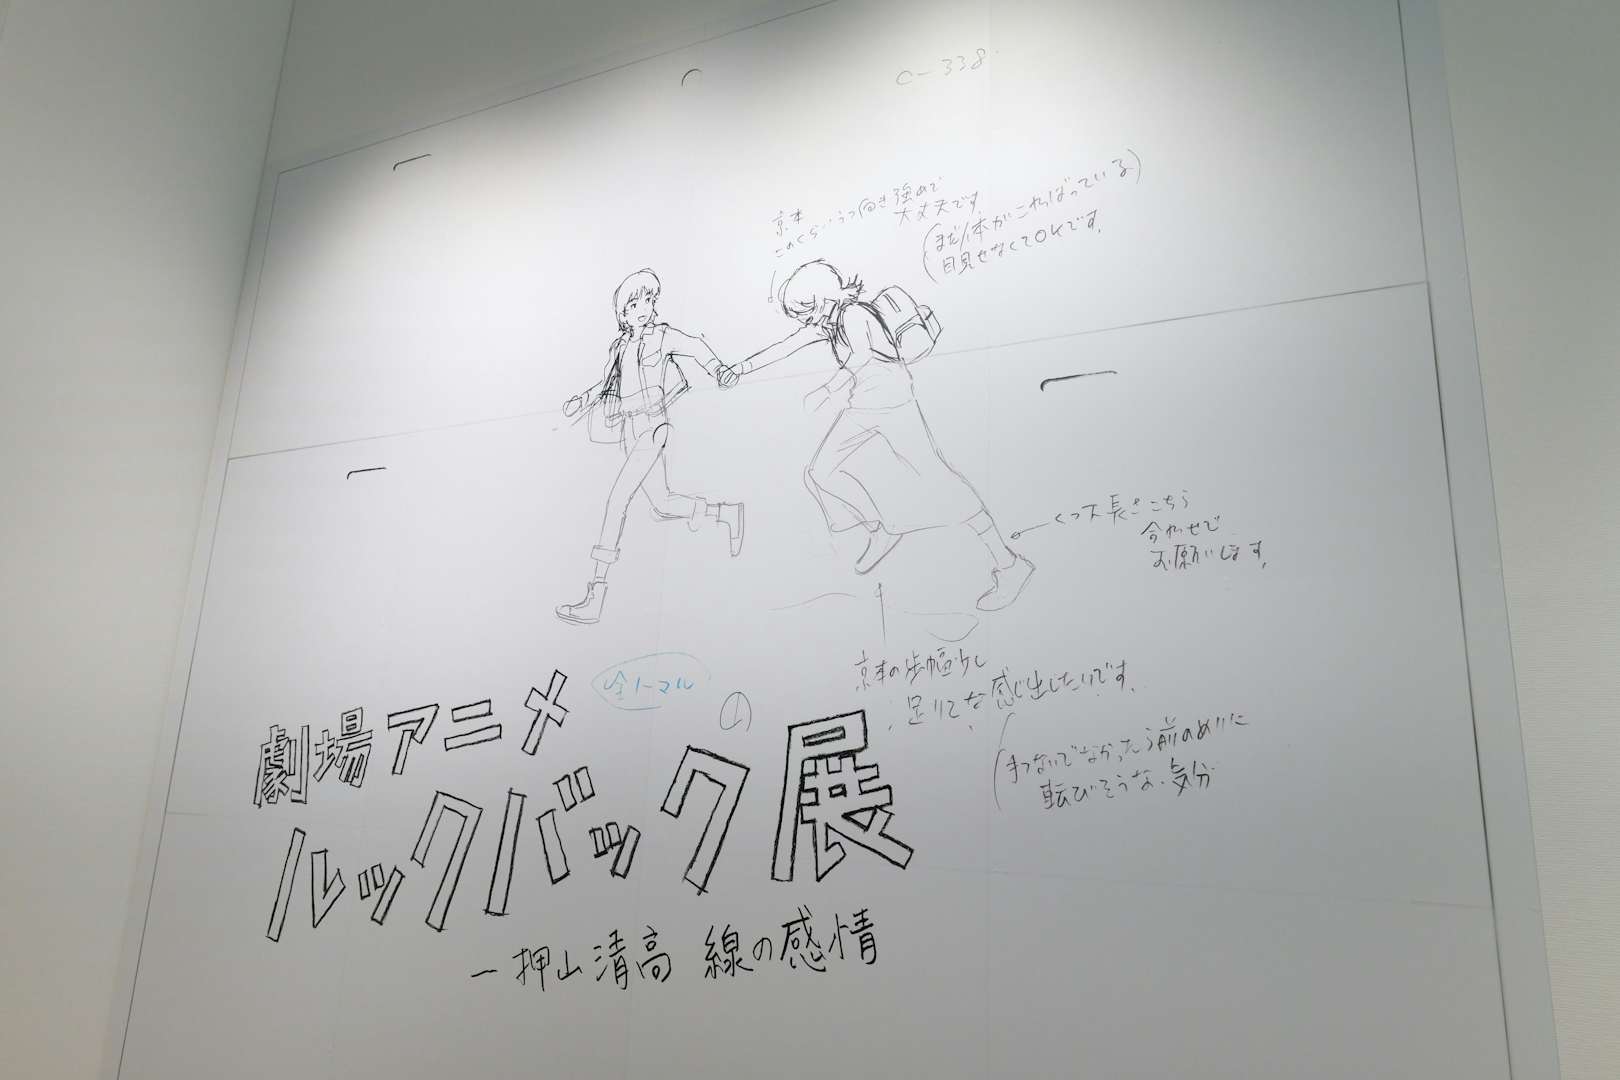 C-338.
京本
このくらいうつ向き強めで
大丈夫です。
(まだ体がこわばっている)
目見せなくてOKです。
くつ下長さこちら
合わせで
お願いします。
京本の歩幅少し
足りてな感じ出したいです。
手つないでなかったら前のめりに
転びそうな気分
全ノーマル
劇場アニメ
ルックバック展
—押山清高 線の感情